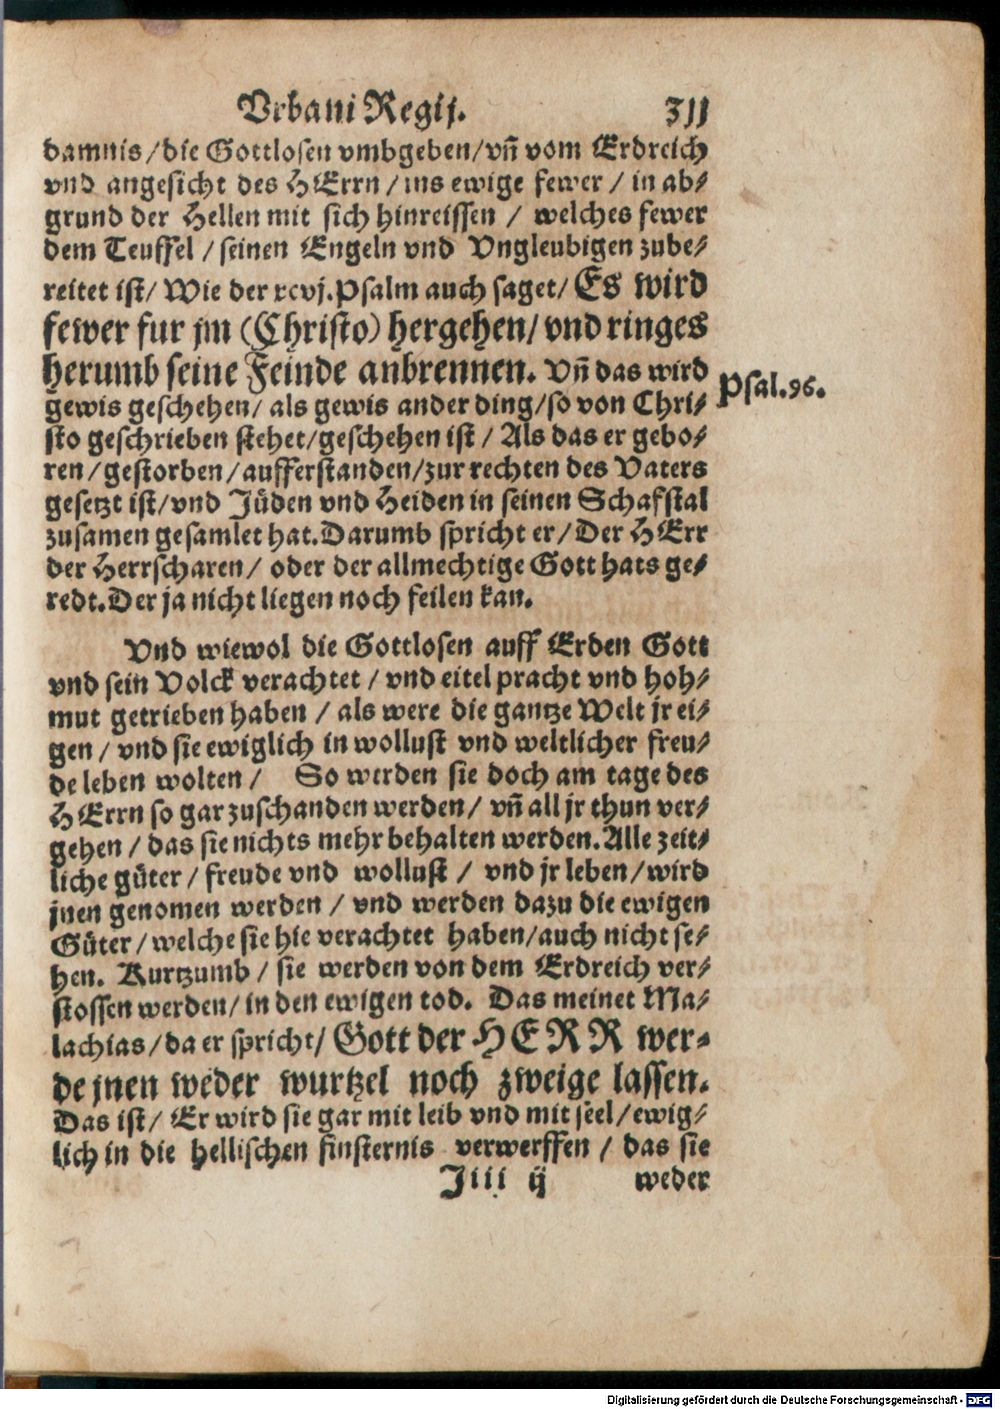 Vrbani Regij. 311
damnis/die Gottlosen vmbgeben/vn̄ vom Erdreich
vnd angesicht des HErrn/ins ewige fewer/in ab⸗
grund der Hellen mit sich hinreissen/welches fewer
dem Teuffel/seinen Engeln vnd Vngleubigen zube⸗
reitet ist/Wie der xcvj.Psalm auch saget/Es wird
fewer fur jm (Christo) hergehen/vnd ringes
herumb seine Feinde anbrennen. Vn̄ das wird
Psal.96.
gewis geschehen/als gewis ander ding/so von Chri⸗
sto geschrieben stehet/geschehen ist/Als das er gebo⸗
ren/gestorben/aufferstanden/zur rechten des Vaters
gesetzt ist/vnd Jüden vnd Heiden in seinen Schafstal
zusamen gesamlet hat.Darumb spricht er/Der HErr
der Herrscharen/oder der allmechtige Gott hats ge⸗
redt.Der ja nicht liegen noch feilen kan.
Vnd wiewol die Gottlosen auff Erden Gott
vnd sein Volck verachtet/vnd eitel pracht vnd hoh⸗
mut getrieben haben/als were die gantze Welt jr ei⸗
gen/vnd sie ewiglich in wollust vnd weltlicher freu⸗
de leben wolten/ So werden sie doch am tage des
HErrn so gar zuschanden werden/vn̄ all jr thun ver⸗
gehen/das sie nichts mehr behalten werden.Alle zeit⸗
liche güter/freude vnd wollust/vnd jr leben/wird
jnen genomen werden/vnd werden dazu die ewigen
Güter/welche sie hie verachtet haben/auch nicht se⸗
hen. Kurtzumb/sie werden von dem Erdreich ver⸗
stossen werden/in den ewigen tod. Das meinet Ma⸗
lachias/da er spricht/Gott der HERR wer⸗
de jnen weder wurtzel noch zweige lassen.
Das ist/Er wird sie gar mit leib vnd mit seel/ewig⸗
lich in die hellischen finsternis verwerffen/das sie
Jiii ij weder
Digitalisierung gefördert durch die Deutsche Forschungsgemeinschaft - DFG